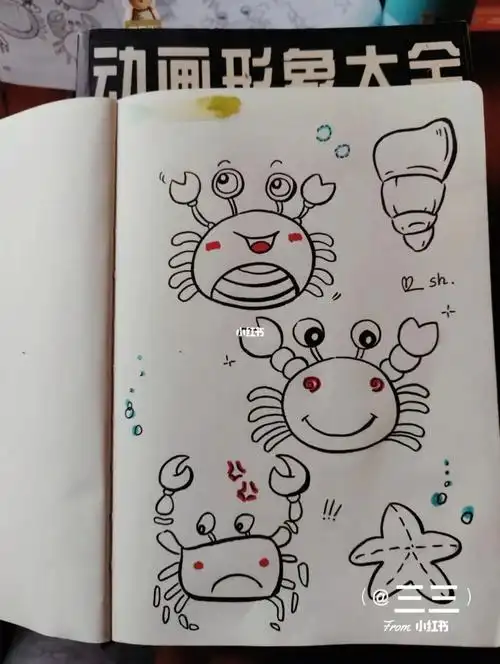 动画形象大全
sh.
小红书
!!!
(@三三)
From 小红书